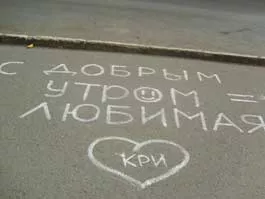 С ДОБРЫМ
УТРОМ =
ЛЮБИМАЯ
КРИ